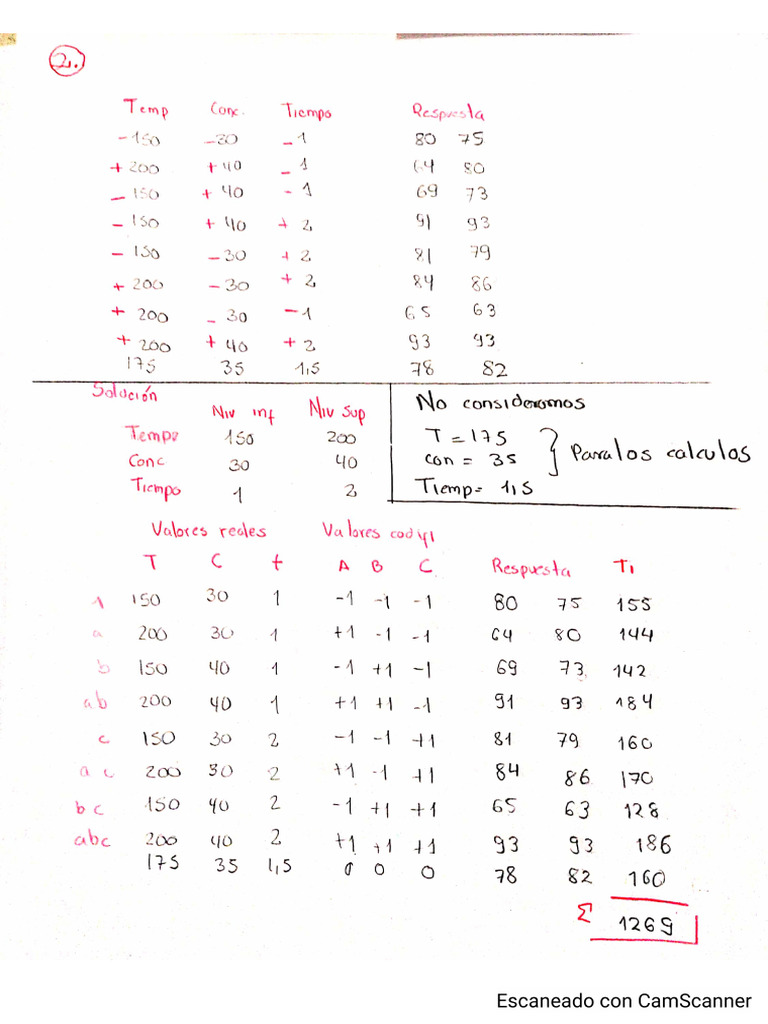 2.
Temp Conc. Tiempo Respuesta
-150 -30 -1 80 75
+200 +40 -1 64 80
-150 +40 -1 69 73
-150 +40 +2 91 93
-150 -30 +2 81 79
+200 -30 +2 84 86
+200 -30 -1 65 63
+200 +40 +2 93 93
175 35 1,5 78 82
Solución
Niv inf Niv Sup
Tempe 150 200
Conc 30 40
Tiempo 1 2
No consideramos
T = 175
con = 35 } Para los calculos
Tiemp = 1,5
Valores reales Valores cod
T C t A B C Respuesta Ti
1 150 30 1 -1 -1 -1 80 75 155
a 200 30 1 +1 -1 -1 64 80 144
b 150 40 1 -1 +1 -1 69 73 142
ab 200 40 1 +1 +1 -1 91 93 184
c 150 30 2 -1 -1 +1 81 79 160
ac 200 30 2 +1 -1 +1 84 86 170
bc 150 40 2 -1 +1 +1 65 63 128
abc 200 40 2 +1 +1 +1 93 93 186
175 35 1,5 0 0 0 78 82 160
Σ 1269
Escaneado con CamScanner